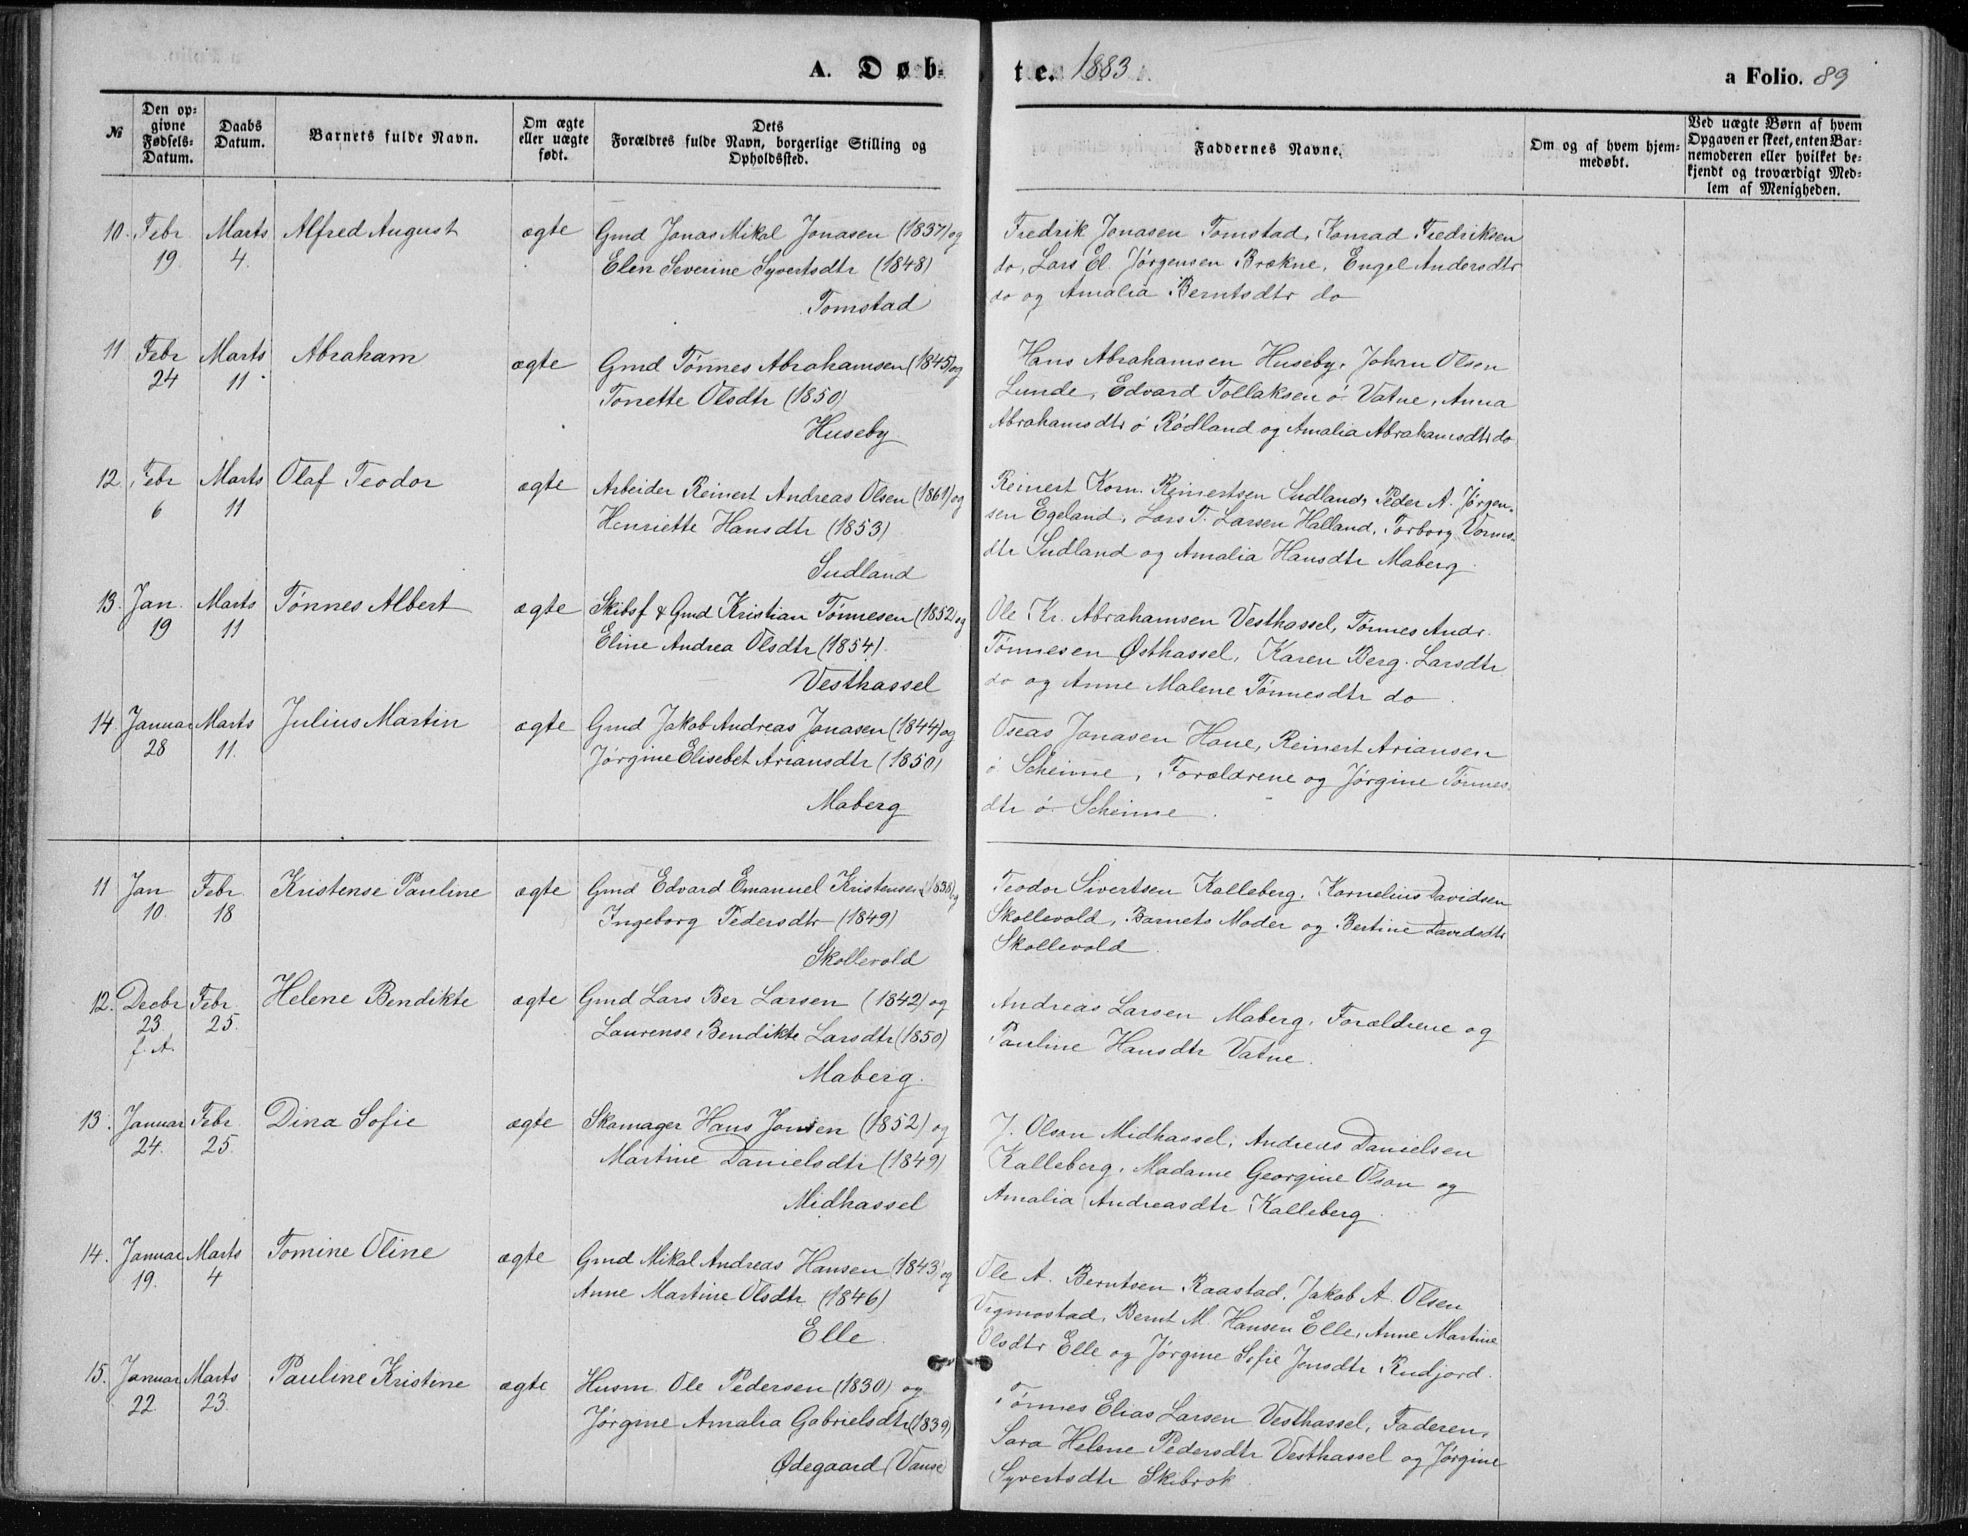 A. Døb-
te. 1883
a Folio. 89
№
Den op-
givne
Fødsels-
Datum.
Daabs
Datum.
Barnets fulde Navn.
Om ægte
eller uægte
født.
Dets
Forældres fulde Navn, borgerlige Stilling og
Opholdssted.
Faddernes Navne.
Om og af hvem hjem-
medøbt.
Ved uægte Børn af hvem
Opgaven er skeet, enten Bar-
nemoderen eller hvilket be-
kjendt og troværdigt Med-
lem af Menigheden.
10. Febr Marts Alfred August ægte Gmd Jonas Mikal Jonasen (1837) og
19 4. Elen Severine Syvertsdtr (1848)
Tomstad
Fredrik Jonasen Tomstad, Konrad Fredriksen
do, Lars El. Jørgensen Brækne, Engel Andersdtr
do og Amalia Berntsdtr do
11 Febr Marts Abraham ægte Gmd Tønnes Abrahamsen (1845) og
24 11. Tonette Olsdtr (1850)
Huseby
Hans Abrahamsen Huseby, Johan Olson
Lunde, Edvard Tollaksen ö. Vatne, Anna
Abrahamsdtr ö Rödland og Amalia Abrahamsdtr do
12 Febr Marts Olaf Teodor ægte Arbeider Reinert Andreas Olsen (1861) og
6 11 Henriette Hansdtr (1853)
Sudland
Reinert Korn. Reinertsen Sudland, Peder A. Jørgen-
sen Egeland, Lars T. Larsen Halland, Torborg Torms-
dtr Sudland og Amalia Hansdtr Maberg
13. Jan. Marts Tønnes Albert ægte Skibsf & Gmd Kristian Tønnesen (1852) og
19 11 Eline Andrea Olsdtr (1854)
Vesthassel
Ole Kr. Abrahamsen Vesthassel, Tønnes Andr.
Tønnesen Østhassel, Karen Berg. Larsdtr
do og Anne Malene Tønnesdtr do
14. Januar Marts Julius Martin ægte Gmd Jakob Andreas Jonasen (1844) og
28 11. Jørgine Elisebet Ariansdtr (1850)
Maberg
Oseas Jonasen Hane, Reinert Ariansen
ö Scheime, Forældrene og Jørgine Tønnes-
dtr ö Scheime.
11 Jan Febr Kristense Pauline ægte Gmd Edvard Emanuel Kristensen (1838) og
10. 18 Ingeborg Pedersdtr (1849)
Skollevold
Teodor Sivertsen Kalleberg, Kornelius Davidsen
Skollevold, Barnets Moder og Bertine Davidsdtr
Skollevold.
12. Decbr Febr Helene Bendikte ægte Gmd Lars Ber Larsen (1842) og
23. 25. Laurense Bendikte Larsdtr (1850)
f. A.
Maberg.
Andreas Larsen Maberg, Forældrene og
Pauline Hansdtr Vatne.
13. Januar Febr Dina Sofie ægte Skomager Hans Jonsen (1852) og
24. 25. Martine Danielsdtr (1849)
Midhassel
J. Olson Midhassel, Andreas Danielsen
Kalleberg, Madame Georgine Olson og
Amalia Andreasdtr Kalleberg.
14. Januar Marts Tomine Oline ægte Gmd Mikal Andreas Hansen (1843) og
19. 4 Anne Martine Olsdtr (1846)
Elle.
Ole A. Berntsen Raastad, Jakob A. Olsen
Vigmostad, Bernt M. Hansen Elle, Anne Martine
Olsdtr Elle og Jørgine Sofie Jensdtr Rudjord.
15. Januar Marts Pauline Kristine ægte Husm. Ole Pedersen (1830) og
22. 23. Jørgine Amalia Gabrielsdtr (1839)
Ødegaard (Vanse
Tønnes Elias Larsen Vesthassel, Faderen,
Sara Helene Pedersdtr Vesthassel og Jørgine
Syvertsdtr Skibrok.